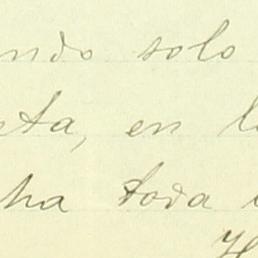 ndo solo
ta, en l
ha toda